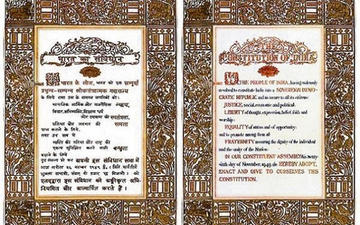 भारत का संविधान
हम भारत के लोग, भारत को एक सम्पूर्ण
प्रभुत्व-सम्पन्न लोकतंत्रात्मक गणराज्य बनाने
के लिये तथा उस के समस्त नागरिकों को:
सामाजिक, आर्थिक और राजनैतिक न्याय,
विचार, अभिव्यक्ति, विश्वास, धर्म
और उपासना की स्वतंत्रता,
प्रतिष्ठा और अवसर की समता
प्राप्त कराने के लिये,
तथा उन सब में
व्यक्ति की गरिमा और राष्ट्र की
एकता सुनिश्चित करने वाली बन्धुता
बढ़ाने के लिये
दृढ़संकल्प हो कर अपनी इस संविधान सभा में
आज तारीख २६ नवम्बर
एतद्द्वारा इस संविधान को अंगीकृत,
अधिनियमित और आत्मार्पित करते हैं।
CONSTITUTION OF INDIA
WE, THE PEOPLE OF INDIA, having solemnly
resolved to constitute India into a SOVEREIGN DEMO-
CRATIC REPUBLIC and to secure to all its citizens:
JUSTICE, social, economic and political;
LIBERTY of thought, expression, belief, faith and
worship;
EQUALITY of status and of opportunity;
and to promote among them all
FRATERNITY assuring the dignity of the individual
and the unity of the Nation;
IN OUR CONSTITUENT ASSEMBLY this twenty-
sixth day of November, 1949, do HEREBY ADOPT,
ENACT AND GIVE TO OURSELVES THIS
CONSTITUTION.